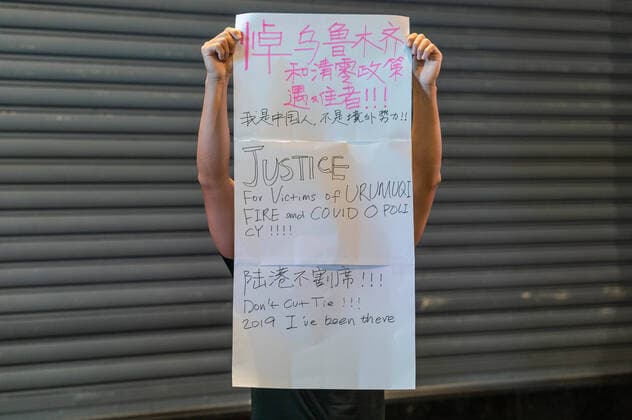 悼乌鲁木齐
和清零政策
遇难者!!!
我是中国人,不是境外势力!!
JUSTICE
For Victims of URUMUQI
FIRE and COVID 0 POLI
CY !!!!
陆港不割席!!!
Don't Cut Tie !!!
2019 I've been there